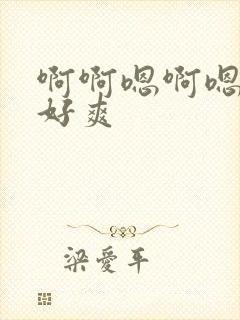 啊啊嗯啊嗯
好爽
梁爱平